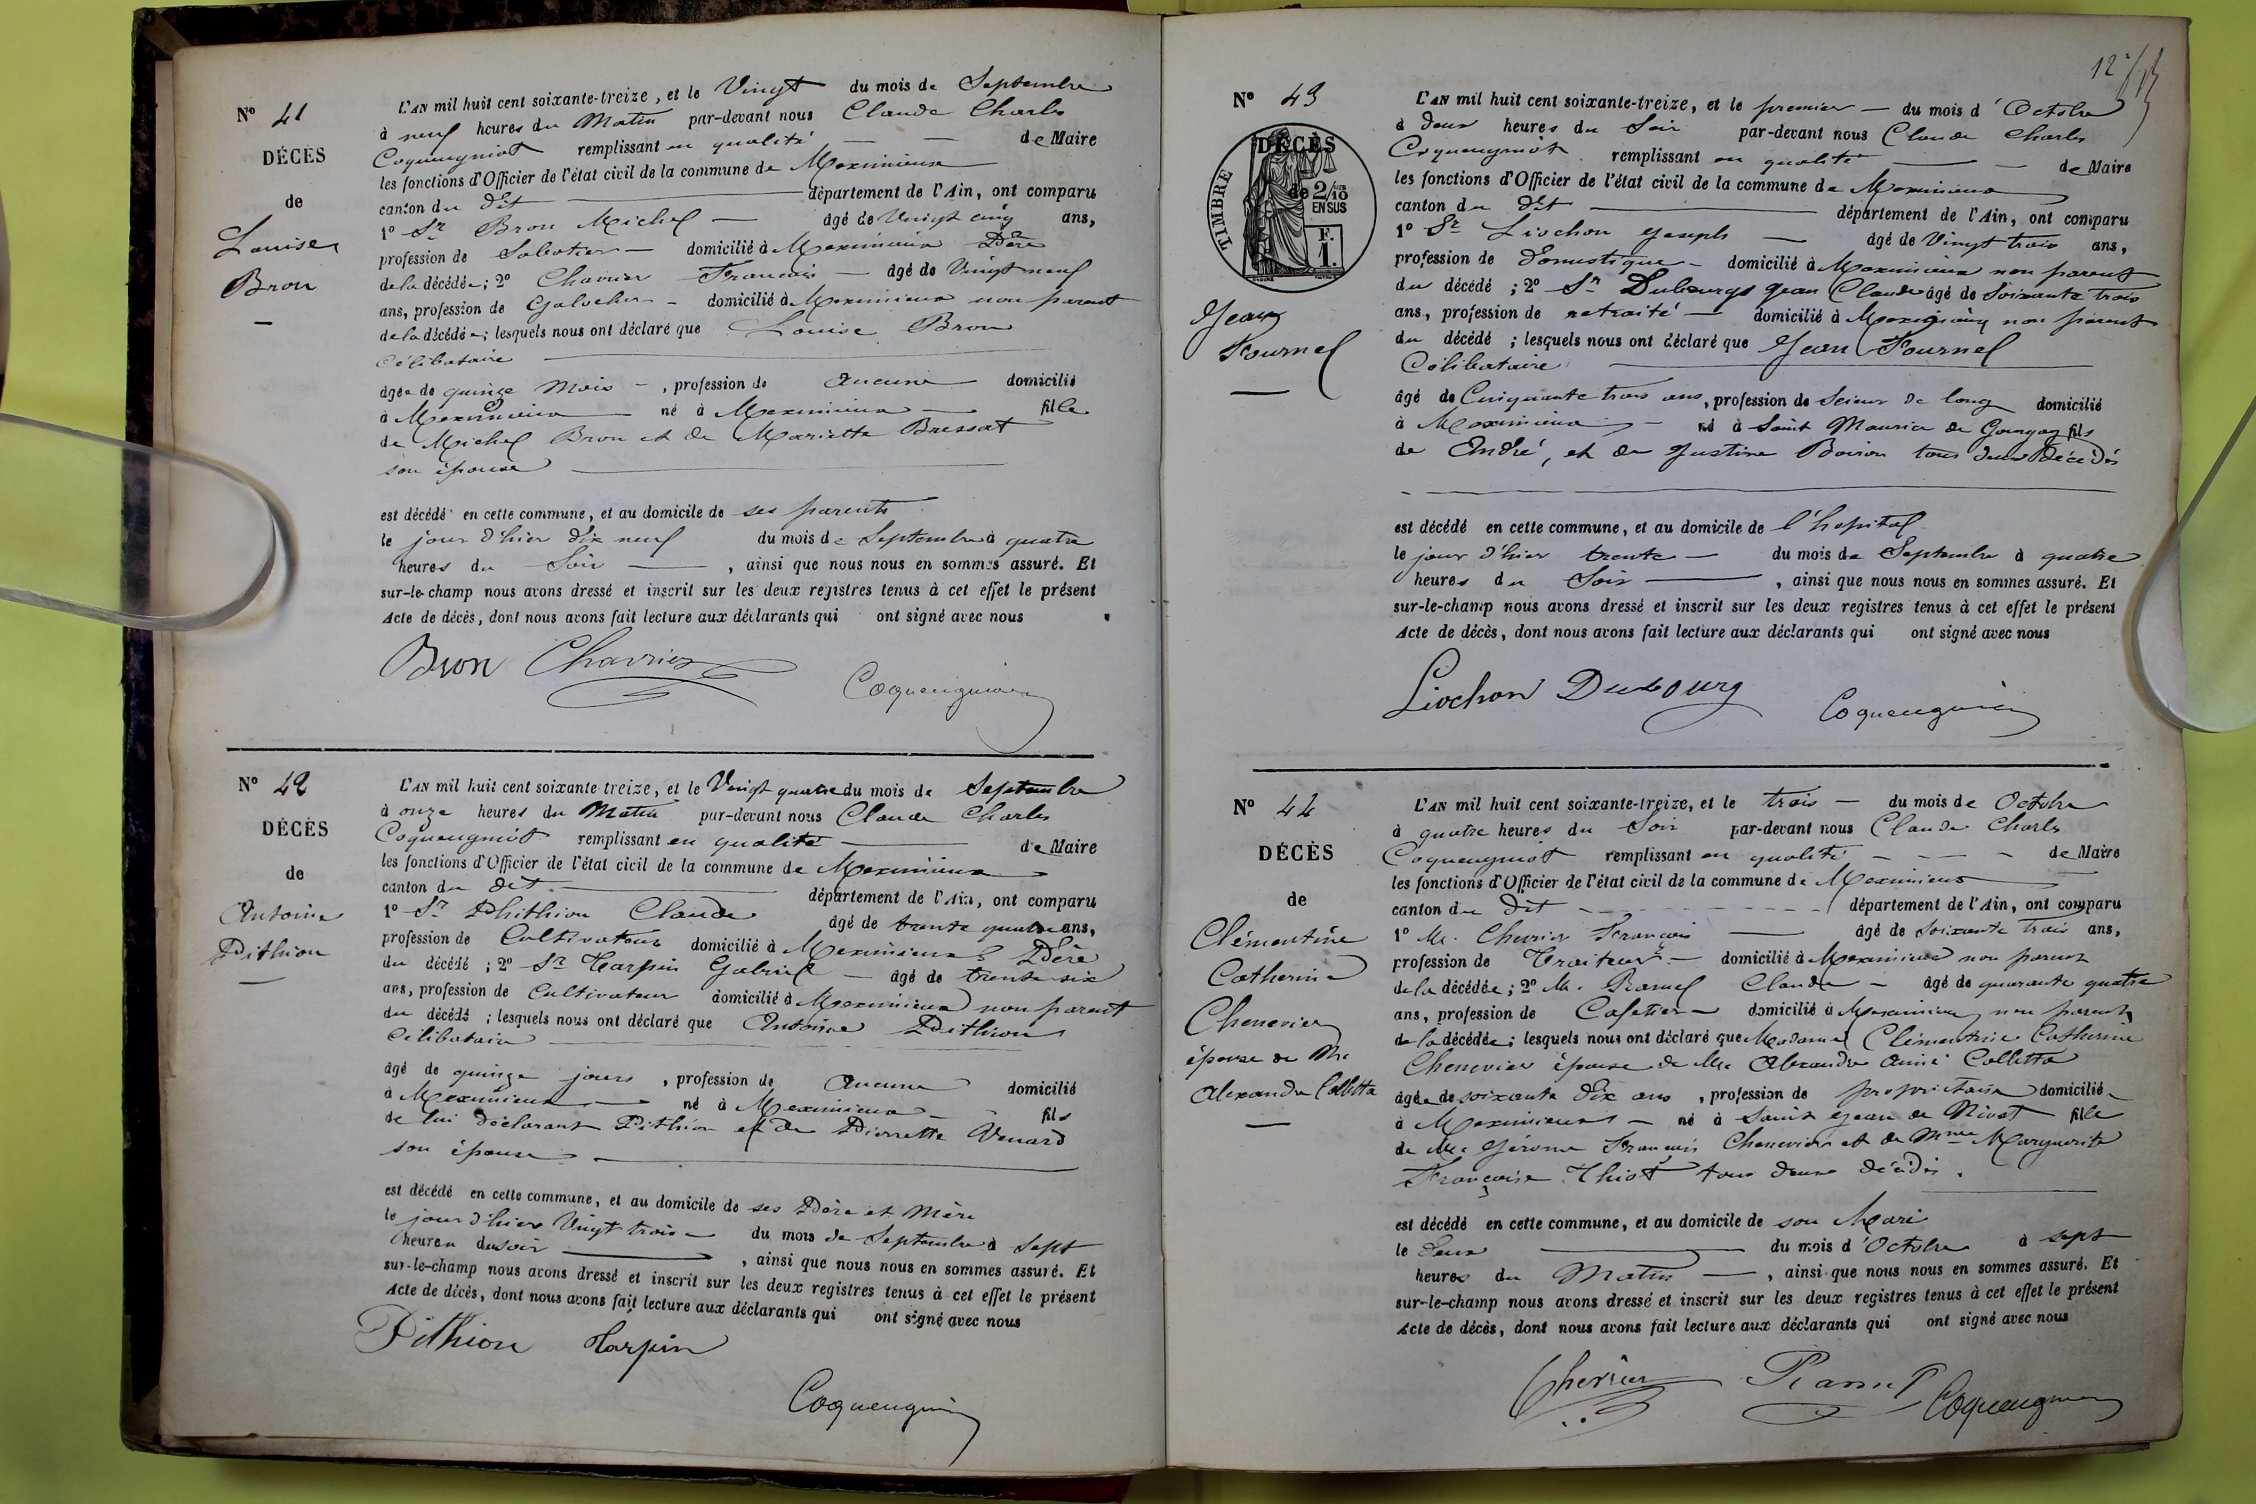 N° 41
DÉCÈS
de
Louise
Bron
L'AN mil huit cent soixante-treize, et le Vingt du mois de Septembre
à neuf heures du Matin par-devant nous Claude Charles
Coqueugniot remplissant en qualité de Maire
les fonctions d'Officier de l'état civil de la commune de Meximieux
canton du dit département de l'Ain, ont comparu
1° Sr Bron Michel âgé de Vingt cinq ans,
profession de Sabotier domicilié à Meximieux Père
de la décédée; 2° Chavrier François âgé de Vingt neuf
ans, profession de Galocher domicilié à Meximieux non parent
de la décédée; lesquels nous ont déclaré que Louise Bron
Célibataire
âgée de quinze Mois, profession de Aucune domicilié
à Meximieux né à Meximieux fille
de Michel Bron et de Mariette Bressat
son épouse
est décédé en cette commune, et au domicile de ses parents
le jour d'hier dix neuf du mois de Septembre à quatre
heures du Soir, ainsi que nous nous en sommes assuré. Et
sur-le-champ nous avons dressé et inscrit sur les deux registres tenus à cet effet le présent
Acte de décès, dont nous avons fait lecture aux déclarants qui ont signé avec nous
Bron Chavrier
Coqueugniot
N° 42
DÉCÈS
de
Antoine
Pithion
L'AN mil huit cent soixante-treize, et le Vingt quatre du mois de Septembre
à onze heures du Matin par-devant nous Claude Charles
Coqueugniot remplissant en qualité de Maire
les fonctions d'Officier de l'état civil de la commune de Meximieux
canton du dit département de l'Ain, ont comparu
1° Sr Phithion Claude âgé de trente quatre ans,
profession de Cultivateur domicilié à Meximieux Père
du décédé; 2° Sr Harpin Gabriel âgé de trente six
ans, profession de Cultivateur domicilié à Meximieux non parent
du décédé; lesquels nous ont déclaré que Antoine Pithion
Célibataire
âgé de quinze jours, profession de Aucune domicilié
à Meximieux né à Meximieux fils
de lui déclarant Pithion et de Pierrette Venard
son épouse
est décédé en cette commune, et au domicile de ses Père et Mère
le jour d'hier Vingt trois du mois de Septembre à Sept
heures du soir, ainsi que nous nous en sommes assuré. Et
sur-le-champ nous avons dressé et inscrit sur les deux registres tenus à cet effet le présent
Acte de décès, dont nous avons fait lecture aux déclarants qui ont signé avec nous
Pithion Harpin
Coqueugniot
N° 43
TIMBRE
DÉCÈS
de
2/10 EN SUS
F. 1.
Jean
Fournel
L'AN mil huit cent soixante-treize, et le premier du mois d'Octobre
à deux heures du Soir par-devant nous Claude Charles
Coqueugniot remplissant en qualité de Maire
les fonctions d'Officier de l'état civil de la commune de Meximieux
canton du dit département de l'Ain, ont comparu
1° Sr Liochon Joseph âgé de Vingt trois ans,
profession de Domestique domicilié à Meximieux non parent
du décédé; 2° Sr Dubourgs Jean Claude âgé de Soixante trois
ans, profession de retraité domicilié à Meximieux non parent
du décédé; lesquels nous ont déclaré que Jean Fournel
Célibataire
âgé de Cinquante trois ans, profession de Scieur de long domicilié
à Meximieux né à Saint Maurice de Gourgoy fils
de André, et de Justine Boiron tous deux Décédés
est décédé en cette commune, et au domicile de l'hopital
le jour d'hier trente du mois de Septembre à quatre
heures du Soir, ainsi que nous nous en sommes assuré. Et
sur-le-champ nous avons dressé et inscrit sur les deux registres tenus à cet effet le présent
Acte de décès, dont nous avons fait lecture aux déclarants qui ont signé avec nous
Liochon Dubourg
Coqueugniot
N° 44
DÉCÈS
de
Clémentine
Catherine
Chenevier
épouse de Mr
Alexandre Colletta
L'AN mil huit cent soixante-treize, et le trois du mois de Octobre
à quatre heures du Soir par-devant nous Claude Charles
Coqueugniot remplissant en qualité de Maire
les fonctions d'Officier de l'état civil de la commune de Meximieux
canton du dit département de l'Ain, ont comparu
1° Mr. Chevrier François âgé de Soixante trois ans,
profession de Traiteur domicilié à Meximieux non parent
de la décédée; 2° M. Ramel Claude âgé de quarante quatre
ans, profession de Cafetier domicilié à Meximieux non parent
de la décédée; lesquels nous ont déclaré que Madame Clémentine Catherine
Chenevier épouse de Mr Alexandre Aimé Colletta
âgée de soixante dix ans, profession de propriétaire domiciliée
à Meximieux né à Saint Jean de Niost fille
de Mr Jérome François Chenevier et de Mme Marguerite
Françoise Thiot tous deux décédés.
est décédé en cette commune, et au domicile de son Mari
le deux du mois d'Octobre à sept
heures du Matin, ainsi que nous nous en sommes assuré. Et
sur-le-champ nous avons dressé et inscrit sur les deux registres tenus à cet effet le présent
Acte de décès, dont nous avons fait lecture aux déclarants qui ont signé avec nous
Chevrier Ramel Coqueugniot